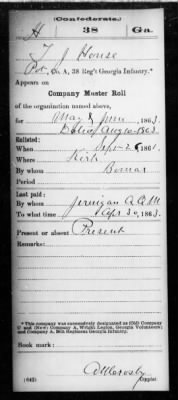 (Confederate.)
H 38 Ga.
T J House
Pvt, Co. A, 38 Reg't Georgia Infantry.*
Appears on
Company Muster Roll
of the organization named above,
for May & June, 1863.
Enlisted:
When Sept 26, 1861.
Where Kirk
By whom Bomar
Period
Last paid:
By whom Jernigan A.Q.M.
To what time 30, 1863.
Present or absent Present
Remarks:
* This company was successively designated as (Old) Company
and (New) Company A, Wright Legion, Georgia Volunteers;
and Company A, 38th Regiment Georgia Infantry.
Book mark:
(642)
Copyist